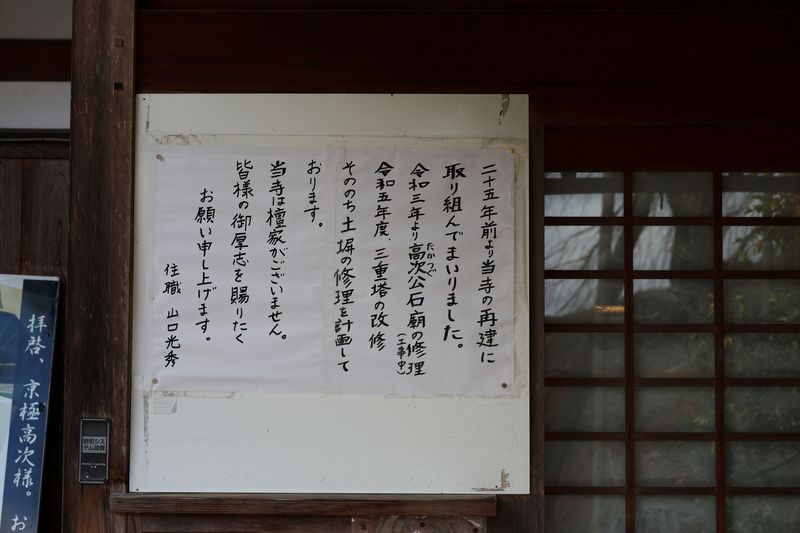 二十五年前より当寺の再建に
取り組んでまいりました。
令和三年より高次公石廟の修理
たかつぐ
(工事中)
令和五年度、三重塔の改修
そののち土塀の修理を計画して
おります。
当寺は檀家がございません。
皆様の御厚志を賜りたく
お願い申し上げます。
住職 山口光秀
拝啓、京極高次様。お
防犯シス
テム設置